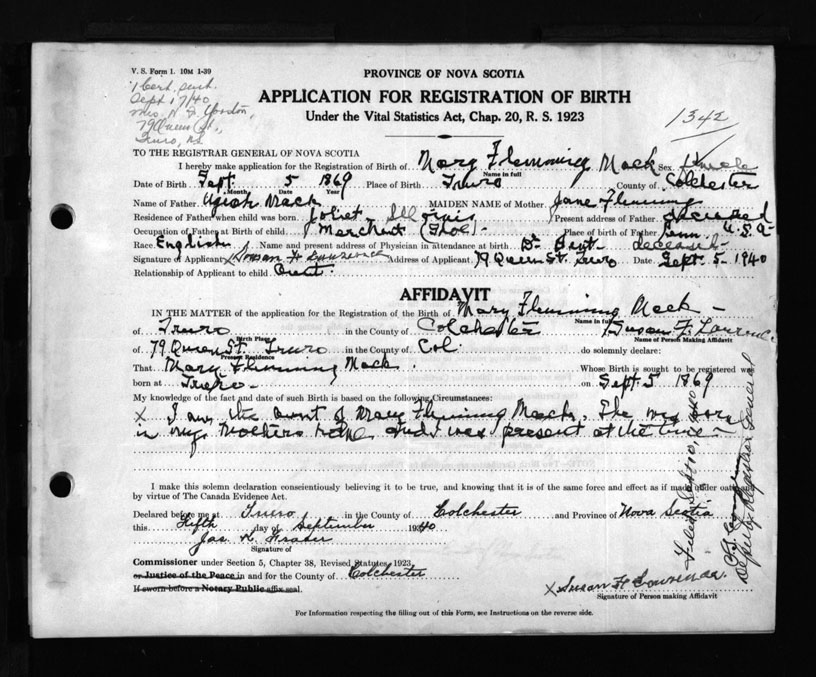 V. S. Form 1. 10M 1-39
1 Cert. sent.
Sept 17/40
Mrs. N. F. Yorston,
79 Queen St.,
Truro, N.S.
1342
PROVINCE OF NOVA SCOTIA
APPLICATION FOR REGISTRATION OF BIRTH
Under the Vital Statistics Act, Chap. 20, R. S. 1923
TO THE REGISTRAR GENERAL OF NOVA SCOTIA
I hereby make application for the Registration of Birth of Mary Flemming Mack Sex female
Name in full
Date of Birth Sept. 5 1869 Place of Birth Truro County of Colchester
Month Date Year
Name of Father Mack MAIDEN NAME of Mother Jane Flemming
Residence of Father when child was born Joliet Illinois Present address of Father deceased
Occupation of Father at Birth of child Merchant Place of birth of Father Penn. U.S.A.
Race English Name and present address of Physician in attendance at birth Dr. deceased
Signature of Applicant x Susan F Lawrence Address of Applicant 79 Queen St. Truro Date Sept. 5 - 1940
Relationship of Applicant to child Aunt.
AFFIDAVIT
IN THE MATTER of the application for the Registration of the Birth of Mary Flemming Mack -
Name in full
of Truro in the County of Colchester I Susan F. Lawrence
Birth Place Name of Person Making Affidavit
of 79 Queen St. Truro in the County of Col. do solemnly declare:
Present Residence
That Mary Flemming Mack Whose Birth is sought to be registered was
born at Truro - on Sept. 5 1869
My knowledge of the fact and date of such Birth is based on the following Circumstances:
x I am the aunt of Mary Flemming Mack. She was born
in my Mothers home and was present at the time -
I make this solemn declaration conscientiously believing it to be true, and knowing that it is of the same force and effect as if made under oath and
by virtue of The Canada Evidence Act.
Declared before me at Truro in the County of Colchester and Province of Nova Scotia
this Fifth day of September 1940
Jas. N. Fraser
Signature of
Commissioner under Section 5, Chapter 38, Revised Statutes 1923
or Justice of the Peace in and for the County of Colchester
If sworn before a Notary Public affix seal.
x Susan F Lawrence.
Signature of Person making Affidavit
For Information respecting the filling out of this Form, see Instructions on the reverse side.
Deputy Registrar General